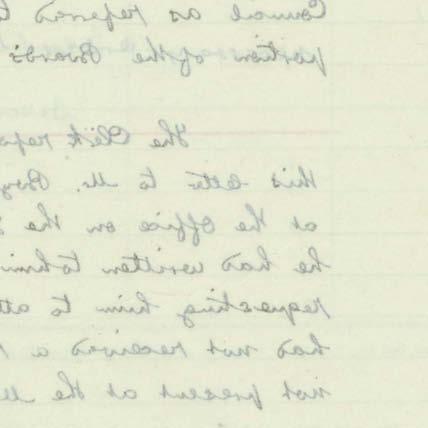 Council as referred t
portion of the Board's
The Clerk repo
this letter to Mr. Boy
at the office on the
he has written to him
requesting him to att
has not received a r
not present at the M